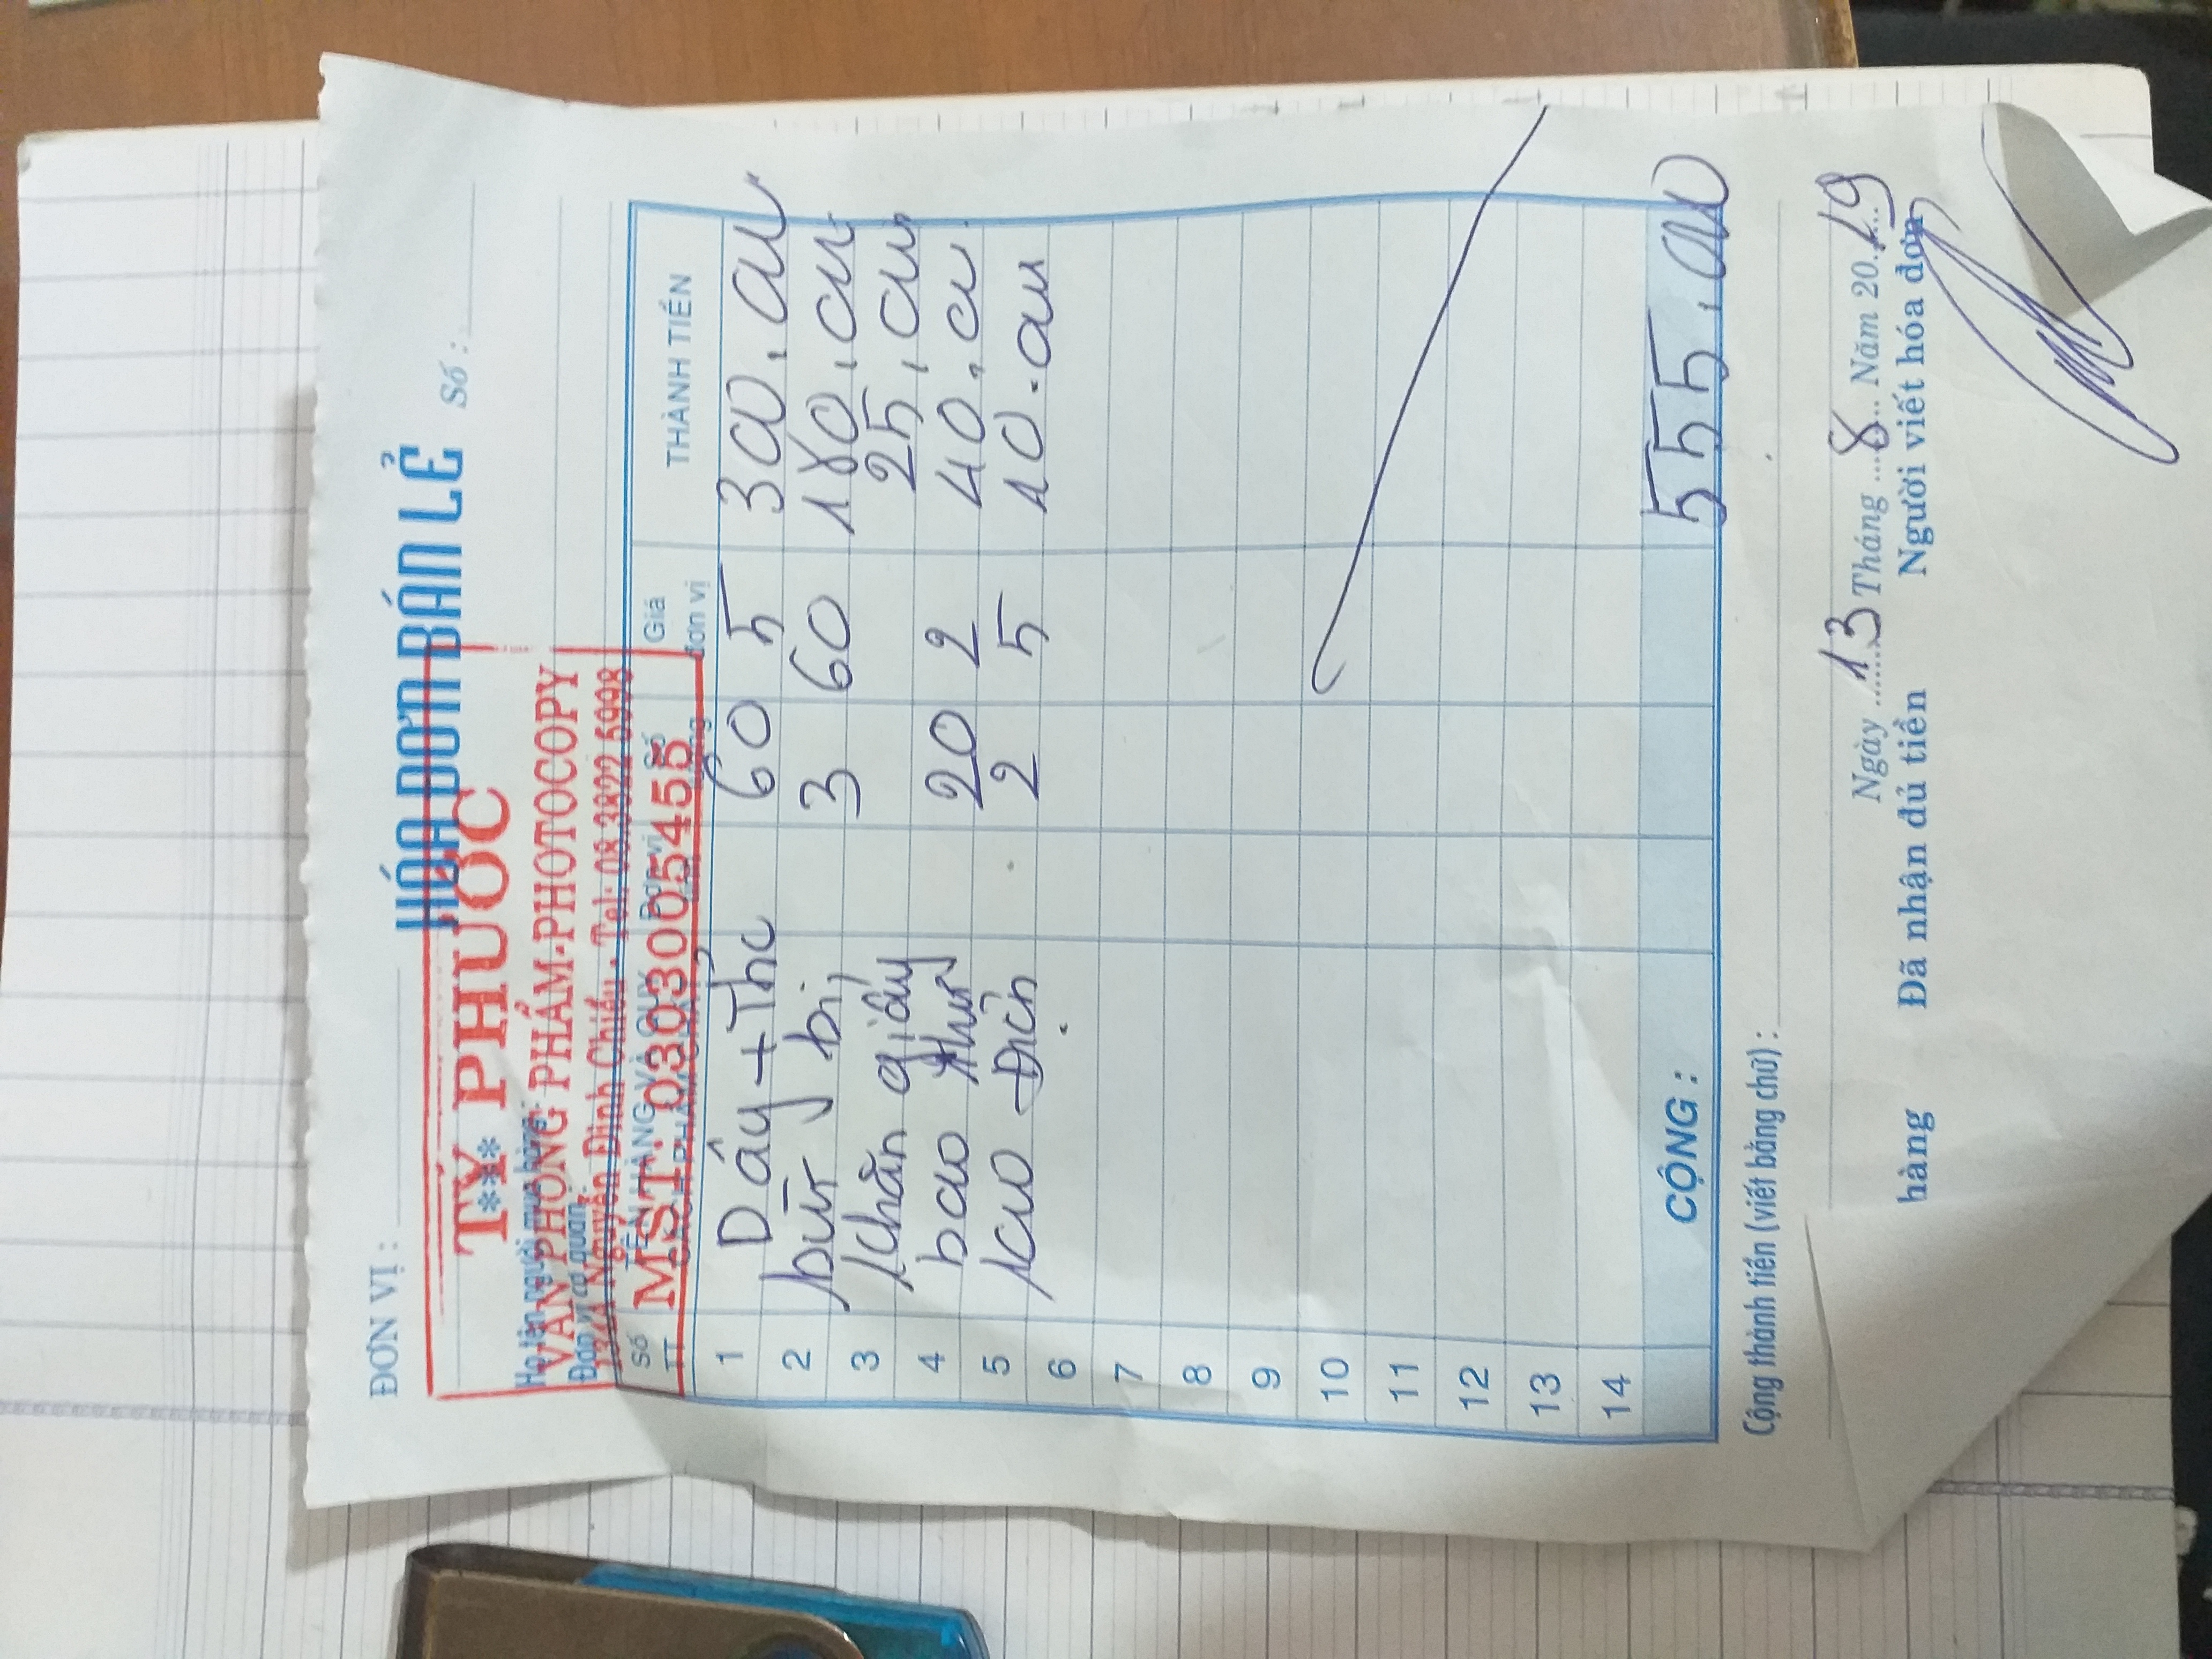 ĐƠN VỊ :
HÓA ĐƠN BÁN LẺ
Số :
TÝ PHƯỚC
***
Họ tên người mua hàng :
VĂN PHÒNG PHẨM-PHOTOCOPY
Đơn vị cơ quan :
134A Nguyễn Đình Chiểu - Tel: 08.3822 5998
MST: 0303005455
Số TT TÊN HÀNG VÀ QUY CÁCH PHẨM CHẤT Đơn vị tính Số lượng Giá đơn vị THÀNH TIỀN
1 Dây + Thẻ 60 5 300.000
2 bút bi 3 60 180.000
3 Khăn giấy 25.000
4 bao thư 20 2 40.000
5 2 5 10.000
6
7
8
9
10
11
12
13
14
CỘNG : 555.000
Cộng thành tiền (viết bằng chữ) :
Ngày 13 Tháng 8 Năm 2019
hàng Đã nhận đủ tiền Người viết hóa đơn